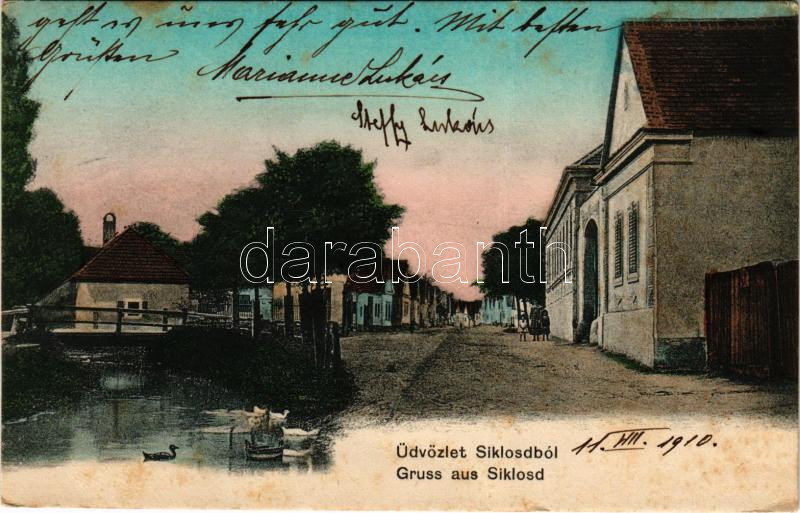 geht es uns sehr gut. Mit besten
Grüßen
Marianne Lukács
Steffy Lukács
darabanth
Üdvözlet Siklosdból
Gruss aus Siklosd
11. VIII. 1910.